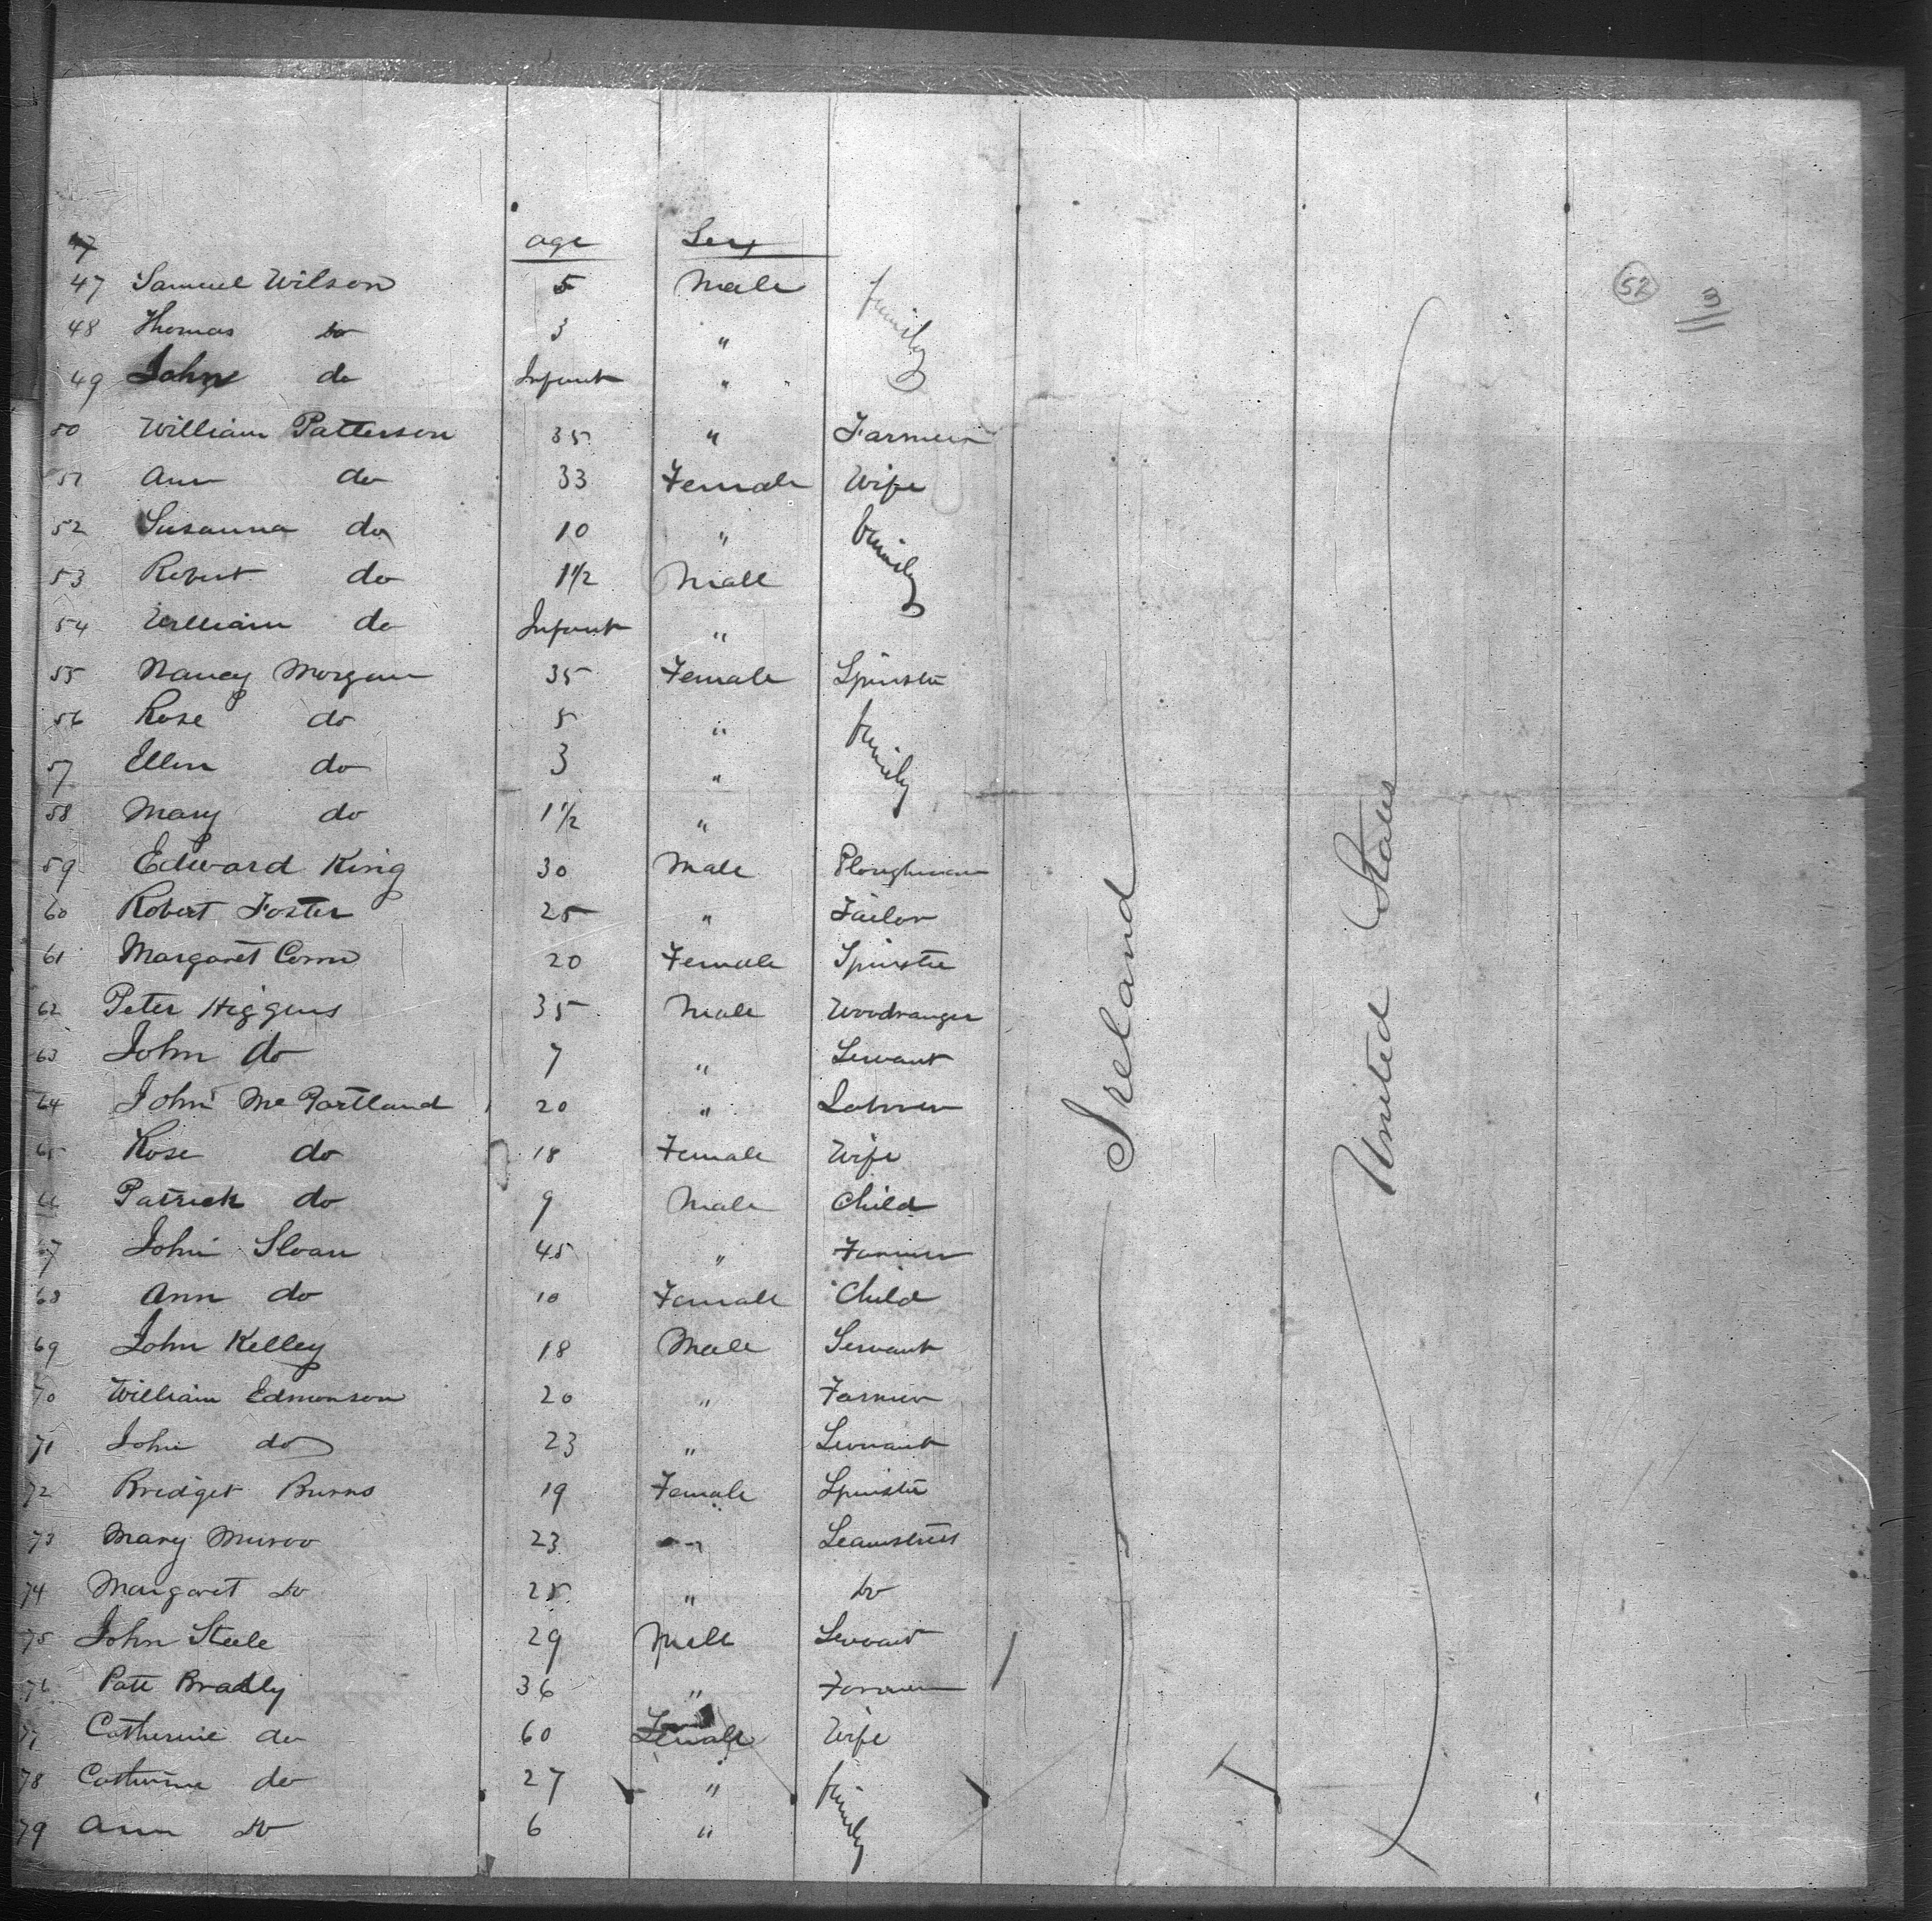 47 age Sex
47 Samuel Wilson 5 Male family 52 3
48 Thomas do 3 "
49 John do Infant "
50 William Patterson 35 " Farmer
51 Ann do 33 Female Wife
52 Susanna do 10 " family
53 Robert do 1 1/2 Male
54 William do Infant "
55 Nancy Morgan 35 Female Spinster
56 Rose do 5 " family
57 Ellen do 3 "
58 Mary do 1 1/2 "
59 Edward King 30 Male Ploughman
60 Robert Foster 25 " Tailor
61 Margaret 20 Female Spinster
62 Peter Higgins 35 Male Woodranger
63 John do 7 " Servant
64 John McPartland 20 " Labourer
65 Rose do 18 Female Wife
66 Patrick do 9 Male Child
67 John Sloan 45 " Farmer
68 Ann do 10 Female Child
69 John Kelley 18 Male Servant
70 William Edmonson 20 " Farmer
71 John do 23 " Servant
72 Bridget Burns 19 Female Spinster
73 Mary Munroo 23 " Seamstress
74 Margaret do 25 " do
75 John Steele 29 Male Servant
76 Patt Bradly 36 " Farmer
77 Catherine do 60 Female Wife
78 Catherine do 27 " family
79 Ann do 6 "
Ireland
United States